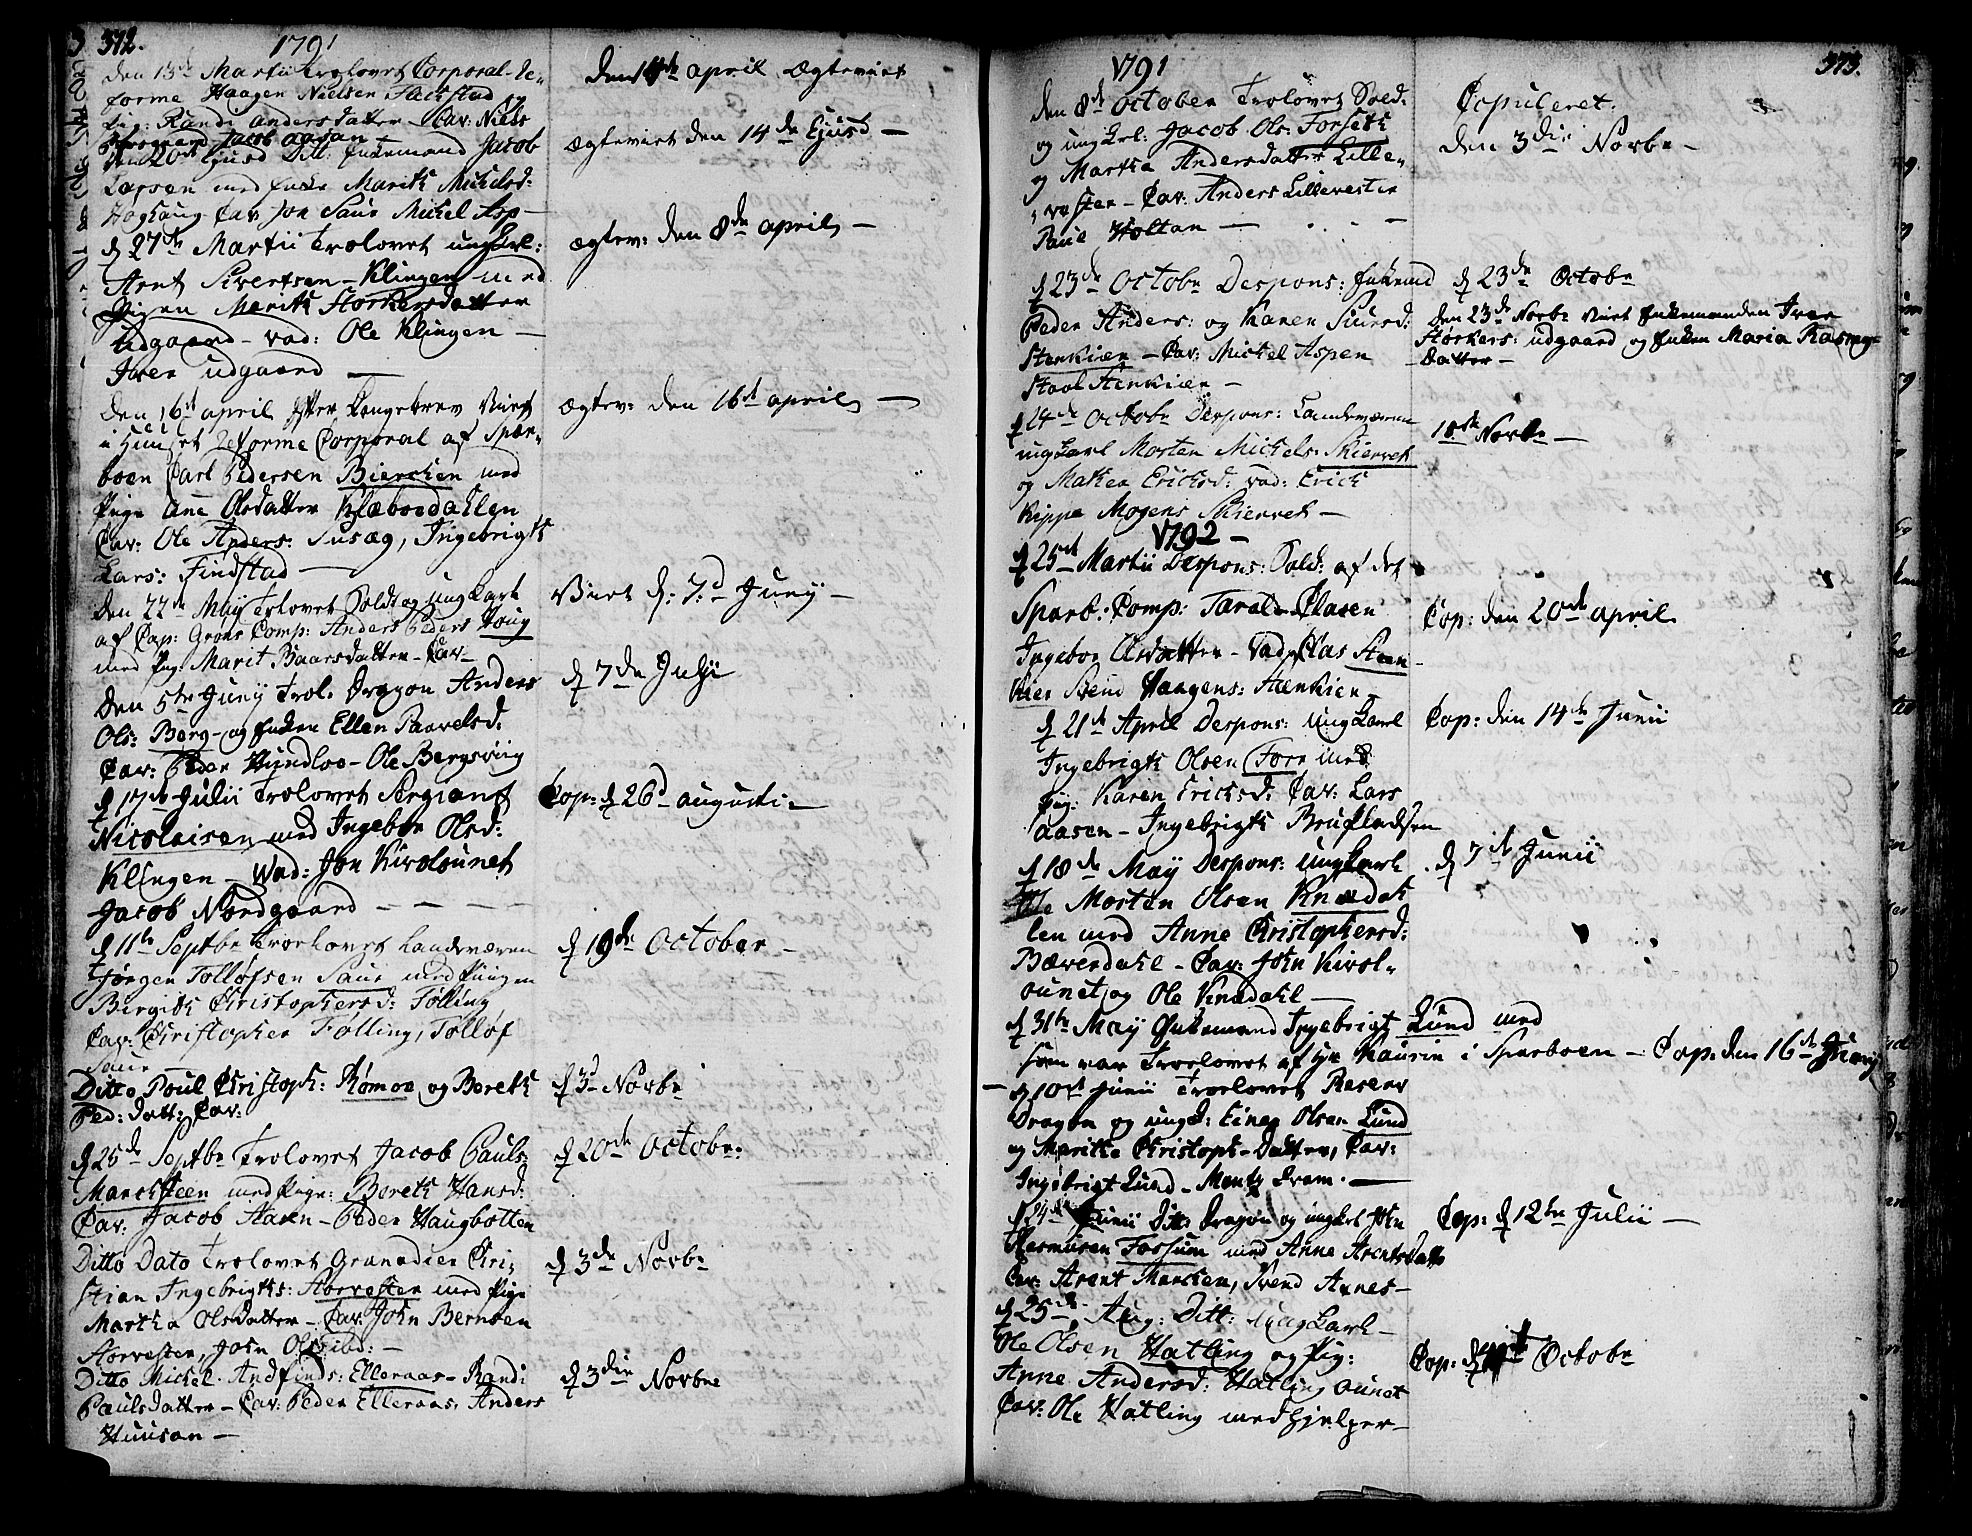 372.
1791
den 13de Martii trolovet Corporal Re-
forme Haagen Nielsen Sackstad og
Randi Andersdatter - Cav: Niels
Jacob Aasan -
den 20de Ejusd Ditt: Enkemand Jacob
Larsen med Enke Marith Mickelsd:
Høghaug Cav Jon Saur Mickel Asp -
d 27de Martii trolovet ungkrl:
Arnt Sivertsen - Klingen med
Pigen Marith Storkersdatter
Udgaard - vad: Ole Klingen -
Iver udgaard -
Den 16d april efter Kongebrev Viet
i Huuset Reforme Corporal af Spar-
boen Carl Pedersen Biercken med
Pige Ane Olsdatter Klæboedahlen
Cav: Ole Anders: Susæg, Ingebrigth
Lars: Findstad -
Den 22de May Trolovet Soldt og ungkarl
af Cap: Grons Comp: Anders Peders Houg
med Pig: Marit Baarsdatter - Cav -
Den 5te Junij Trol: Dragon Anders
Ols: Berg - og Enken Ellen Paavelsd:
Cav: Peder Hundloe - Ole Bergsving
d 17de Julii Trolovet Sergiant
Nicolaisen med Ingebor Olsd:
Klingen - Vad: Jon Kirolounet
Jacob Nordgaard - - -
d 11te Septbr trolovet Landværen
Jørgen Tolløfsen Saur med Pigen
Birgith Christophersd: Følling
Cav: Christopher Følling, Tolløf
Saur -
Ditto Poul Christoph: Rømoe og Bereth
Ped: datt: Cav:
d 25de Septbr Trolovet Jacob Pauls:
Manchsteen med Pige: Bereth Hansd:
Cav: Jacob Aasen - Peder Haugbotten
Ditto Dato trolovet Granadier Chri-
stian Ingebrigths: Aorvesten med Pige
Martha Olsdatter - Cav: John Bernsen
Aorvesten, John Ols: ibd: -
Ditto Mickel Andfinds: Elleraas - Randi
Paulsdatter - Cav: Peder Elleraas: Anders
Huusan -
Den 14de april Ægteviet
Ægteviet den 14de Ejusd -
Ægtev: den 8de april -
Ægtev: den 16d april -
Viet d: 7d Junij -
d 7de Julii
Cop: d 26d augusti -
d 19de October -
d 3d Novbr
d 20de Octobr:
d 3de Novbr
d 3die Novbre
373.
1791
den 8de October Trolovet Sold:
og ungkrl: Jacob Ols: Forseth
og Martha Andersdatter Lille-
vesten - Cav: Anders Lillevesten
Paul Holtan -
d 23de Octobr Despons: Enkemd
Peder Anders: og Karen Siursd:
Stenkiær - Cav: Mickel Aspen
Stenkiær -
d 24de Octobr Despons: Landeværn
ungkarl Morten Mickels: Skiervek
og Mahea Ericksd: vad: Erick
Kippe Mogens Skiervek -
1792 -
d 25d Martii Despons: Sold: af det
Sparb: Comp: Tarald Clasen
Ingebor Olsdatter - Vad Clas Steen-
kier Svend Haagens: Stenkier
d 21de April Despons: Ungkarl
Ingebrigth Olsen Forr med
Pig: Karen Ericksd: Cav: Lars
Aasen - Ingebrigth Brufladsen
d 18de May Despons: Ungkarl
Morten Olsen Knædah-
len med Anne Christophersd:
Bæverdahl - Cav: John Kirol-
ounet, og Ole Knædahl -
d 31te May Enkemand Ingebrigt Lund med
som var Trolovet af Hr Kaurin i Sparboen - Cop: den 16de Junij
- d 10de Junii Trolovet Reserv
Dragon og ungk: Einer Olsen Lund
og Maritha Christoph-Datter, Cav:
Ingebrigt Lund - Mentz Dram -
d 24de Junii Ditt: Dragon og ungkrl John
Rasmusen Fossum med Anne Arentsdatt
Cav: Arent Marchen, Svend Annes -
d 25de Aug: Ditt: ungkarl -
Ole Olsen Hatling og Pig:
Anne Andersd: Hatling ounet
Cav: Ole Hatling medhjelper -
Copuleret:
Den 3die Novbr -
d 23de Octobr
Den 23de Novbr Viet Enkemanden Iver
Størkers: udgaard og Enken Maria Rasmus-
datter -
18de Novbr -
Cop: den 20de april
Cop: den 14de Junii
d 7de Junii
Cop: d 12te Julii -
Cop: d Octobr